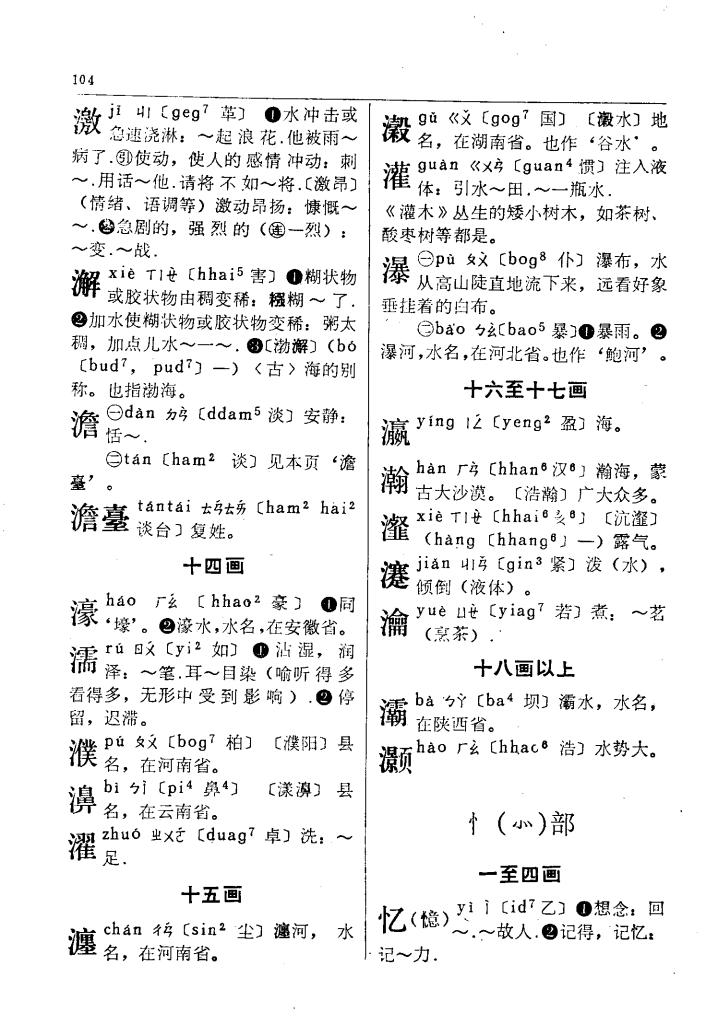 104
激 jī ㄐㄧ〔geg⁷ 革〕 ❶水冲击或
急速浇淋：～起浪花.他被雨～
病了.㊁使动，使人的感情冲动：刺
～.用话～他.请将不如～将.〔激昂〕
（情绪、语调等）激动昂扬：慷慨～
～.❷急剧的，强烈的（㊣—烈）：
～变.～战.
澥 xiè ㄒㄧㄝ̀〔hhai⁵ 害〕❶糊状物
或胶状物由稠变稀：糨糊～了.
❷加水使糊状物或胶状物变稀：粥太
稠，加点儿水～一～.❸〔渤澥〕（bó
〔bud⁷, pud⁷〕—）〈古〉海的别
称。也指渤海。
澹 ㊀dàn ㄉㄢ̀〔ddam⁵ 淡〕安静：
恬～.
㊁tán〔ham² 谈〕见本页‘澹
臺’。
澹臺 tántái ㄊㄢ́ㄊㄞ́〔ham² hai²
谈台〕复姓。
十四画
濠 háo ㄏㄠ́〔hhao² 豪〕 ❶同
‘壕’。❷濠水，水名，在安徽省。
濡 rú ㄖㄨ́〔yi² 如〕❶沾湿，润
泽：～笔.耳～目染（喻听得多
看得多，无形中受到影响）.❷停
留，迟滞。
濮 pú ㄆㄨ́〔bog⁷ 柏〕〔濮阳〕县
名，在河南省。
濞 bì ㄅㄧ̀〔pi⁴ 鼻⁴〕〔漾濞〕县
名，在云南省。
濯 zhuó ㄓㄨㄛ́〔duag⁷ 卓〕洗：～
足.
十五画
瀍 chán ㄔㄢ́〔sin² 尘〕瀍河，水
名，在河南省。
瀔 gǔ ㄍㄨ̌〔gog⁷ 国〕〔瀔水〕地
名，在湖南省。也作‘谷水’。
灌 guàn ㄍㄨㄢ̀〔guan⁴ 惯〕注入液
体：引水～田.～一瓶水.
《灌木》丛生的矮小树木，如茶树、
酸枣树等都是。
瀑 ㊀pù ㄆㄨ̀〔bog⁸ 仆〕瀑布，水
从高山陡直地流下来，远看好象
垂挂着的白布。
㊁bào ㄅㄠ̀〔bao⁵ 暴〕❶暴雨。❷
瀑河，水名，在河北省。也作‘鲍河’。
十六至十七画
瀛 yíng ㄧㄥ́〔yeng² 盈〕海。
瀚 hàn ㄏㄢ̀〔hhan⁶ 汉⁶〕瀚海，蒙
古大沙漠。〔浩瀚〕广大众多。
瀣 xiè ㄒㄧㄝ̀〔hhai⁶〕〔沆瀣〕
（hàng〔hhang⁶〕—）露气。
瀽 jiǎn ㄐㄧㄢ̌〔gin³ 紧〕泼（水），
倾倒（液体）。
瀹 yuè ㄩㄝ̀〔yiag⁷ 若〕煮：～茗
（烹茶）.
十八画以上
灞 bà ㄅㄚ̀〔ba⁴ 坝〕灞水，水名，
在陕西省。
灏 hào ㄏㄠ̀〔hhao⁶ 浩〕水势大。
忄(㣺)部
一至四画
忆(憶) yì ㄧ̀〔id⁷乙〕❶想念：回
～.～故人.❷记得，记忆：
记～力.